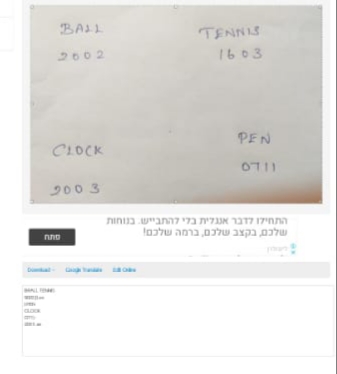 BALL
TENNIS
2002
1603
CLOCK
PEN
0711
2003
התחילו לדבר אנגלית בלי להתבייש. בנוחות
שלכם, בקצב שלכם, ברמה שלכם!
פתח
Download
Google Translate
Edit Online
BALL TENNIS
CLOCK
0711